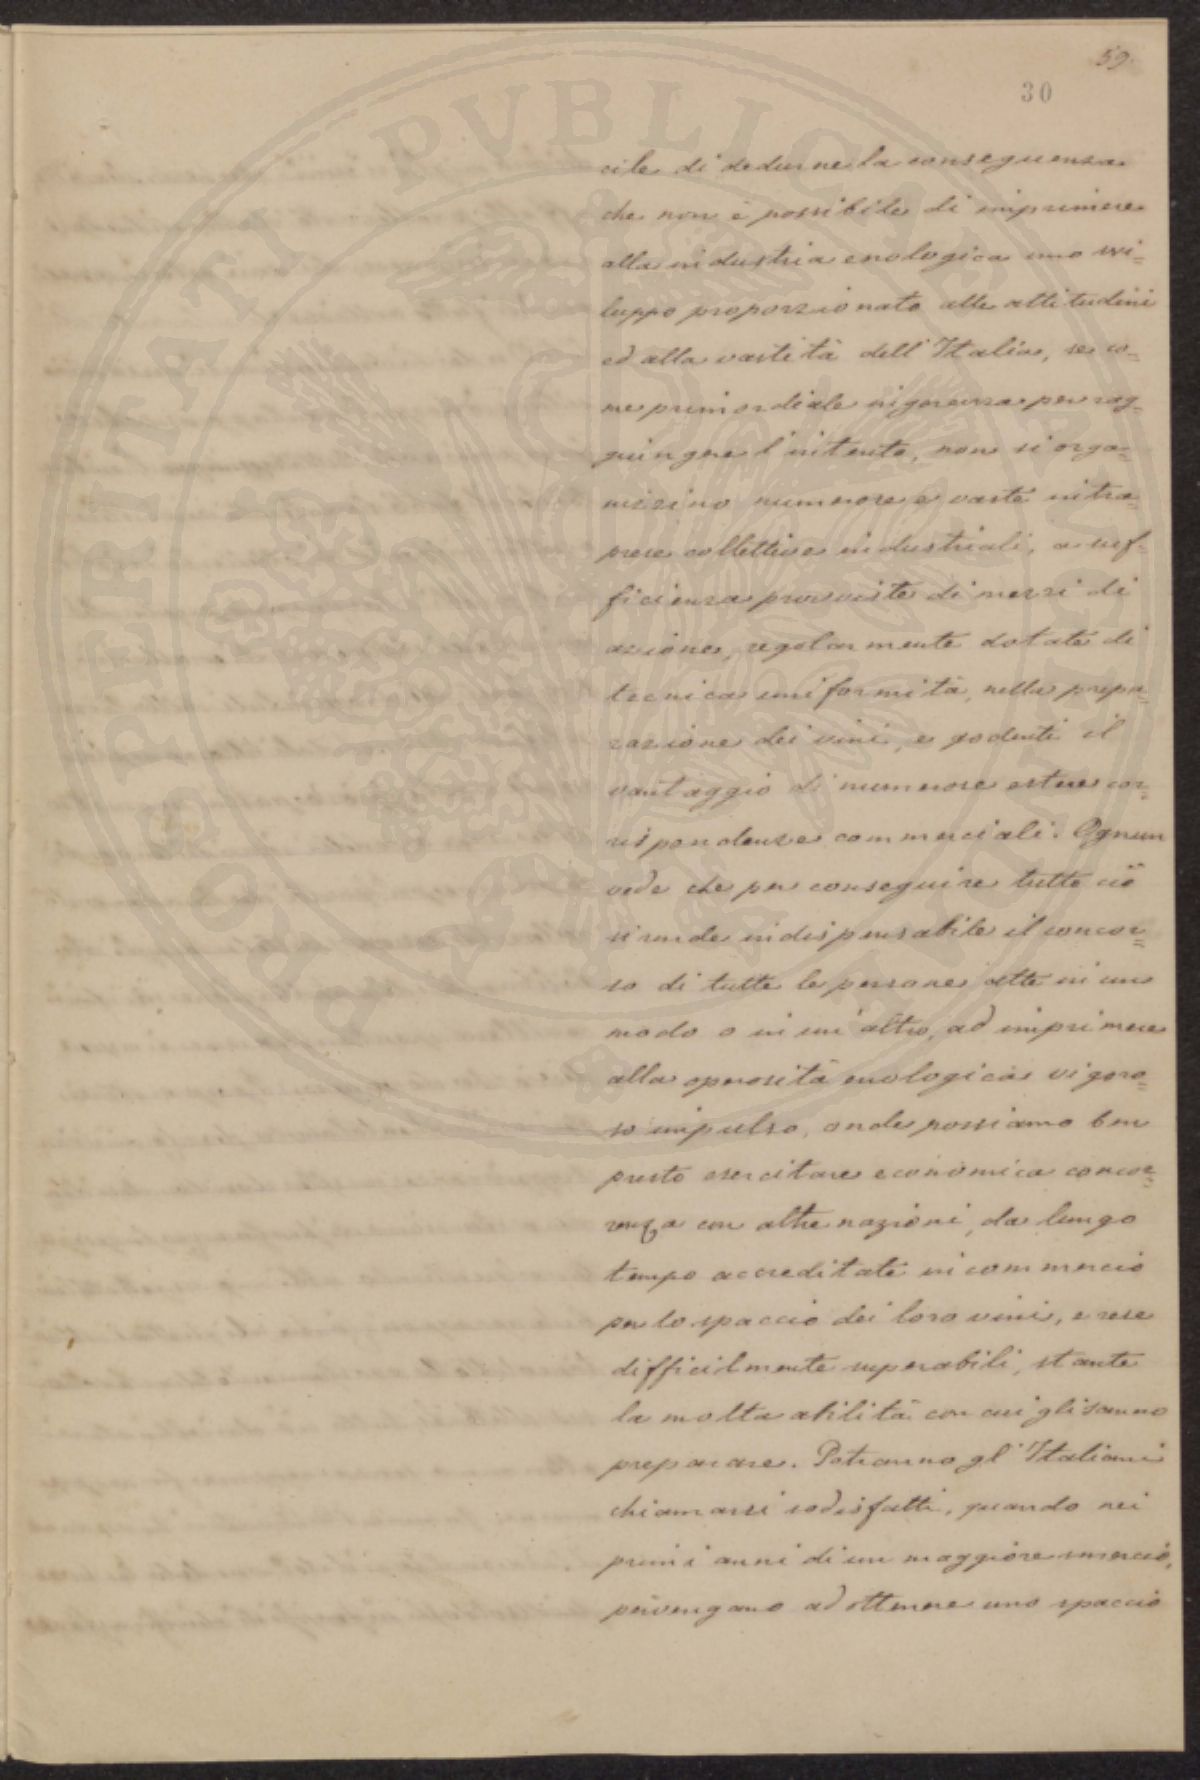 59.
30
cile di dedurne la conseguenza
che non è possibile di imprimere
alla industria enologica uno svi=
luppo proporzionato alle attitudini
ed alla vastità dell'Italia, se co=
me primordiale ingerenza per rag=
giungere l'intento, non si orga=
nizzino numerose e vaste intra=
prese collettive industriali, a suf=
ficienza provviste di mezzi di
azione, regolarmente dotate di
tecnica uniformità, nella prepa=
razione dei vini, e godenti il
vantaggio di numerose estere cor=
rispondenze commerciali. Ognun
vede che per conseguire tutto ciò
si rende indispensabile il concor=
so di tutte le persone atte in un
modo o in un'altro, ad imprimere
alla operosità enologica vigoro=
so impulso, onde possiamo ben
presto esercitare economica concor=
renza con altre nazioni, da lungo
tempo accreditate in commercio
per lo spaccio dei loro vini, e rese
difficilmente superabili, stante
la molta abilità con cui gli sanno
preparare. Potranno gl'Italiani
chiamarsi sodisfatti, quando nei
primi anni di un maggiore smercio,
pervengano ad ottenere uno spaccio
PROSPERITATI PVBLICAE AVGENDAE